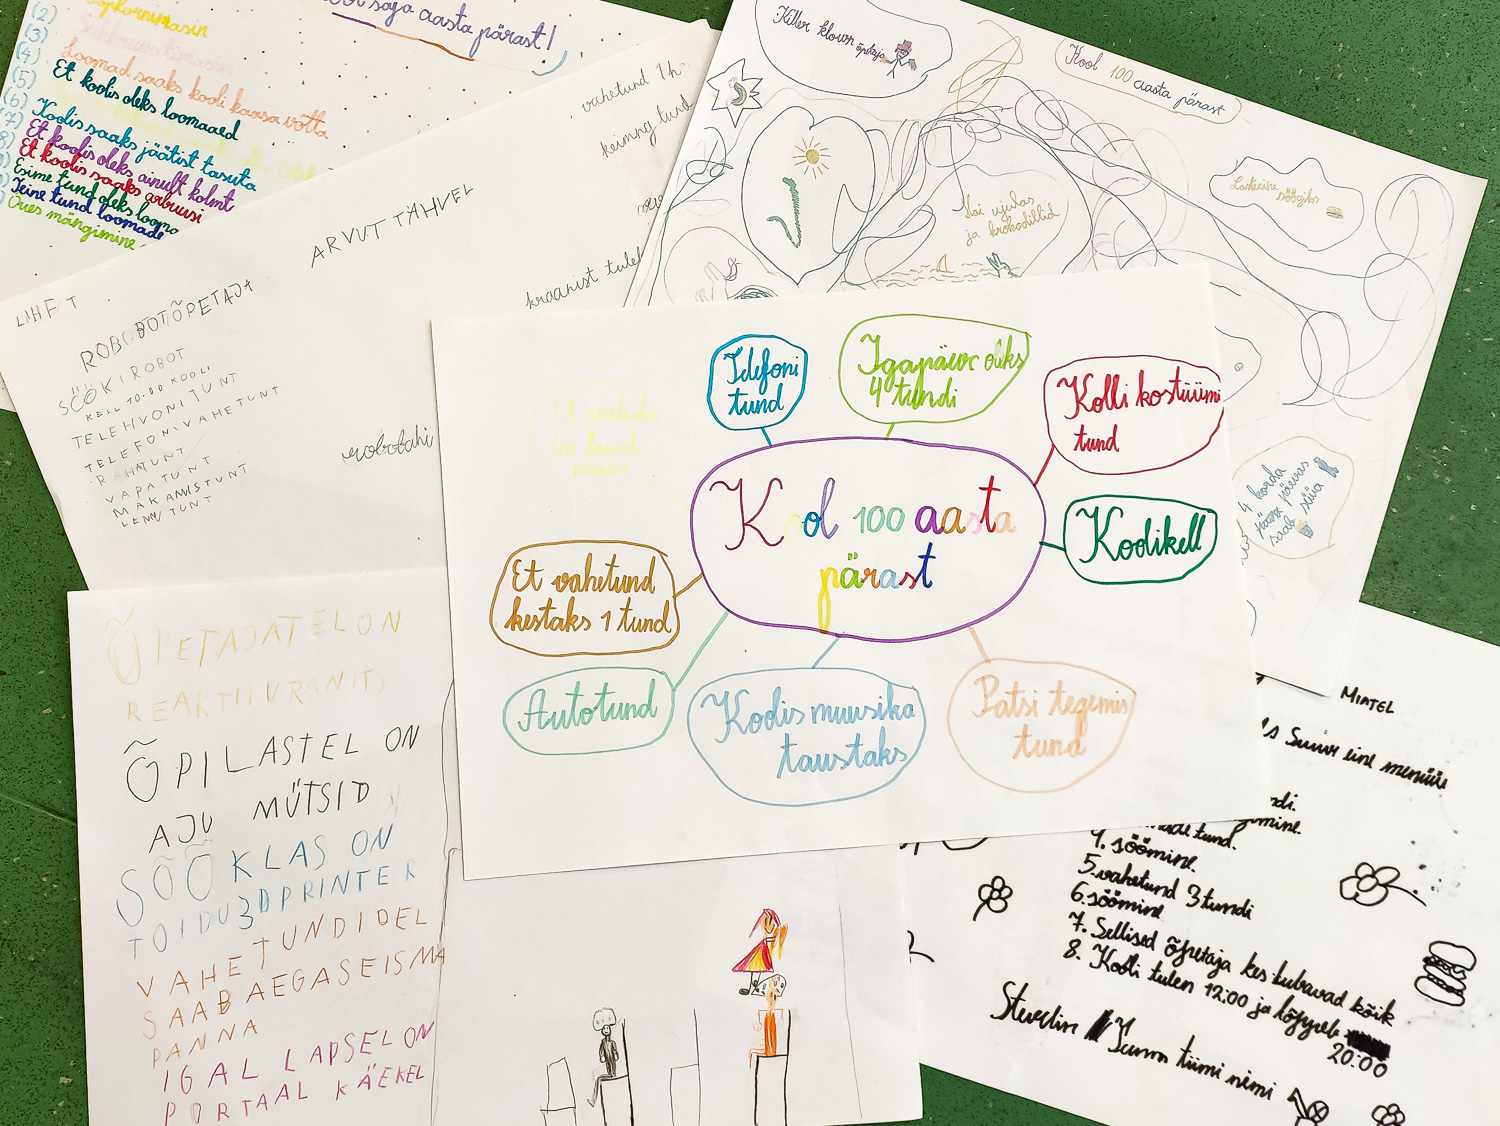 (2)
(3)
(4) Loomad saaks kooli kaasa võtta
(5) Et koolis oleks loomaaed
(6)
(7) Koolis saaks jäätist tasuta
Et koolis oleks ainult kolmt
Et koolis saaks arbuusi
Esime tund oleks looma
Teine tund loomade
Õues mängimine
saja aasta pärast!
vahetund 1h
ARVUT TÄHVEL
kraanist
LIHFT
ROBOTÕPETAJA
SÖÖKIROBOT
KELL 10.00 KOOLI
TELEHVONITUNT
TELEFONIVAHETUNT
VAPATUNT
MAKAMISTUNT
robotahi
Killer kloun õpetaja
Kool 100 aasta pärast
söögiks
Hai ujulas
ja krokodillid
4 korda
päevas
saab süüa
Telefoni
tund
Igapäev oleks
4 tundi
Kolli kostüümi
tund
Kool 100 aasta
pärast
Koolikell
Et vahetund
kestaks 1 tund
Autotund
Koolis muusika
taustaks
Patsi tegemis
tund
ÕPETAJATEL ON
REAKTIIVRANITS
ÕPILASTEL ON
AJU MÜTSID
SÖÖKLAS ON
TOIDU3DPRINTER
VAHETUNDIDEL
SAAB AEGASEISMA
PANNA
IGAL LAPSEL ON
PORTAAL KÄEKEL
MIATEL
Suur eine menüü
4. söömine.
5. vahetund 3 tundi
6. söömine
7. Sellised õpetaja kes lubavad kõik
8. Kooli tulen 12:00 ja lõppeb
20:00
tiimi nimi